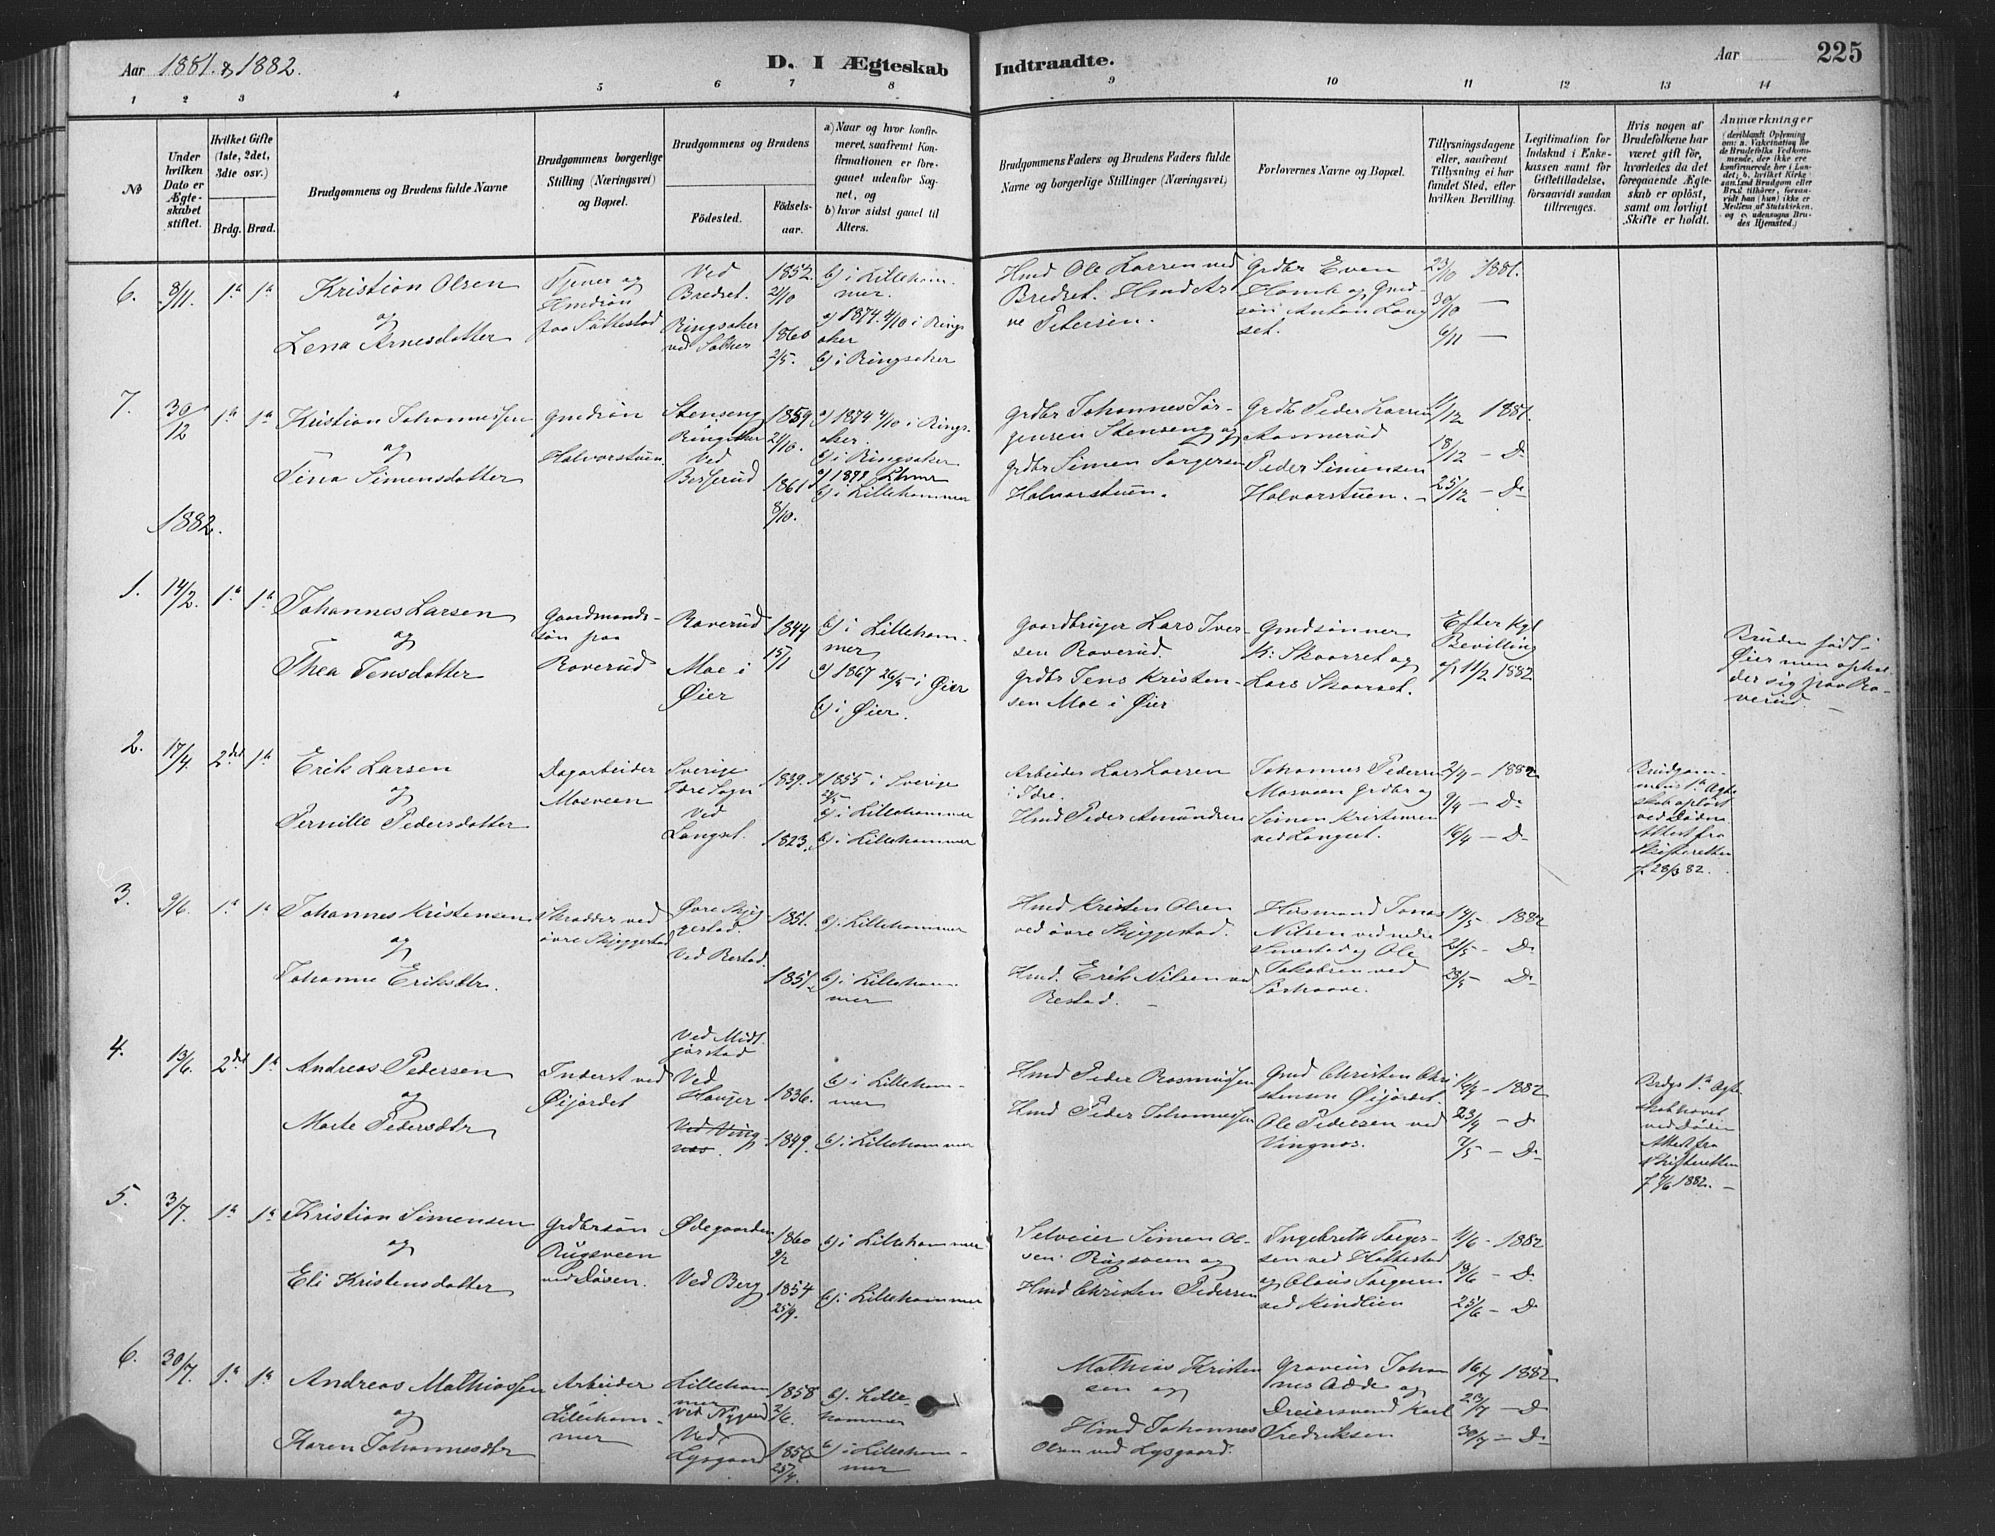 Aar 1881 & 1882.
D. I Ægteskab
Indtraadte.
Aar
225
1 2 3 4 5 6 7 8 9 10 11 12 13 14
No
Under hvilken Dato er Ægteskabet stiftet.
Hvilket Gifte (1ste, 2det, 3die osv.)
Brdg. Brud.
Brudgommens og Brudens fulde Navne
Brudgommens borgerlige Stilling (Næringsvei) og Bopæl.
Brudgommens og Brudens
Födested.
Födselsaar.
a) Naar og hvor konfirmeret, saafremt Konfirmationen er foregaaet udenfor Sognet, og
b) hvor sidst gaaet til Alters.
Brudgommens Faders og Brudens Faders fulde Navne og borgerlige Stillinger (Næringsvei)
Forlovernes Navne og Bopæl.
Tillysningsdagene eller, saafremt Tillysning ei har fundet Sted, efter hvilken Bevilling.
Legitimation for Indskud i Enkekassen samt for Giftetilladelse, forsaavidt saadan tiltrænges.
Hvis nogen af Brudefolkene har været gift för, hvorledes da det foregaaende Ægteskab er oplöst, samt om lovligt Skifte er holdt.
Anmærkninger
6. 8/11. 1ste 1ste
Kristian Olsen
og
Lena Arnesdatter
Tjener og
Hmdsøn
paa Sættestad
Ved
Bredset.
Ringsaker
1852.
21/10
1860
2/5.
b) i Lillehammer.
a) 1874 4/10 i Ringsaker
b) i Ringsaker
Hmd Ole Larsen ved
Bredset. Hmd Arne
Petersen.
Grdbr Even
Homb og Gmdsøn
Anton Langset.
23/10 1881.
30/10 —
6/11 —
7. 30/12 1ste 1ste
Kristian Johannessen
og
Tina Simensdatter
Gmdsøn
Halvorstuen.
Stenseng
Ringsaker
Ved
Berserud
1859
21/10.
1861
8/10.
a) 1874 4/10 i Ringsaker.
b) i Ringsaker
b) i Lillehammer
Grdbr Johannes Jørgensen
Stenseng og
Grdbr Simen Torgersen
Halvorstuen.
Grdbr Peder Larsen
Aannerud
Peder Simensen
Halvorstuen. —
11/12 1881.
18/12 — Do
25/12 — Do
1882.
1. 14/2. 1ste 1ste
Johannes Larsen
og
Thea Jensdatter
Gaardmandssøn
paa
Roverud
Roverud
Moe i
Øier
1844
15/1
b) i Lillehammer
a) 1867 26/5 i Øier
b) i Øier.
Gaardbruger Lars Iversen
Roverud.
Grdbr Jens Kristensen
Moe i Øier
Gmdsønner
K: Skaarset og
Lars Skaarset.
Efter Kgl
Bevilling
af 11/2 1882
Bruden født i
Øier men opholder
sig paa Roverud
2. 17/4. 2det 1ste
Erik Larsen
og
Pernille Pedersdatter
Dagarbeider
Mosveen
Sverige
Idre Sogn
Ved
Langset.
1839.
1823.
a) 1855 i Sverige
b) i Lillehammer
b) i Lillehammer
Arbeider Lars Larsen
i Idre.
Hmd Peder Amundsen
Johannes Pedersen
Mosveen Grdbr og
Simen Kristensen
ved Langset.
2/4 — 1882
9/4 — Do
16/4 — Do
Brudgommens 1ste Ægteskab
opløst
ved Døden
Attest fra
Skifteretten
af 28/3 82.
3. 9/6. 1ste 1ste
Johannes Kristensen
og
Johanne Eriksdtr.
Skrædder ved
øvre Skjeggestad
Øvre Skjeggestad.
Ved Restad.
1851.
1851.
b) i Lillehammer
b) i Lillehammer
Hmd Kristen Olsen
ved øvre Skjeggestad.
Hmd. Erik Nilsen ved
Restad. —
Husmand Jonas
Nilsen ved nedre
og Ole
Jakobsen ved
14/5 — 1882
21/5 — Do
28/5 — Do
4. 13/6. 2det 1ste
Andreas Pedersen
og
Marte Pedersdtr
Inderst ved
Øijordet
Ved
Hauger
Ved Vingnæs.
1836.
1849.
b) i Lillehammer
b) i Lillehammer
Hmd Peder Rasmussen
Hmd Peder Johannessen
Gmd Christen Christensen
Øijordet.
Ole Pedersen ved
Vingnæs.
16/4 — 1882
23/4 — Do
7/5 — Do
Brdgs 1ste Ægteskab
hævet
ved Døden
Attest fra
Skifteretten
af 7/6 1882. —
5. 3/7. 1ste 1ste
Kristian Simensen
og
Eli Kristensdatter
Grdbrsøn
Rugsveen
ved Døsen.
Ødegaarden
Ved Berg
1860
9/2
1854
25/9.
b) i Lillehammer
b) i Lillehammer
Selveier Simen Olsen
Rugsveen og
Hmd Christen Pedersen
Ingebreth Torgersen
ved Hattestad
og Claus Torgersen
ved Kindlien
11/6 — 1882
18/6 — Do
25/6 — Do
6. 30/7. 1ste 1ste
Andreas Mathiassen
og
Karen Johannesdtr
Arbeider
Lillehammer
Lillehammer
ved Nygaard
Ved
Lysgaard
1858
2/6.
1856
25/4.
b) i Lillehammer
b) i Lillehammer
Mathias Kristensen
og
Hmd Johannes
Olsen ved Lysgaard.
Graveur Johannes
Odde og
Dreiersvend Karl
Fredriksen
16/7 1882
23/7 — Do
30/7 — Do